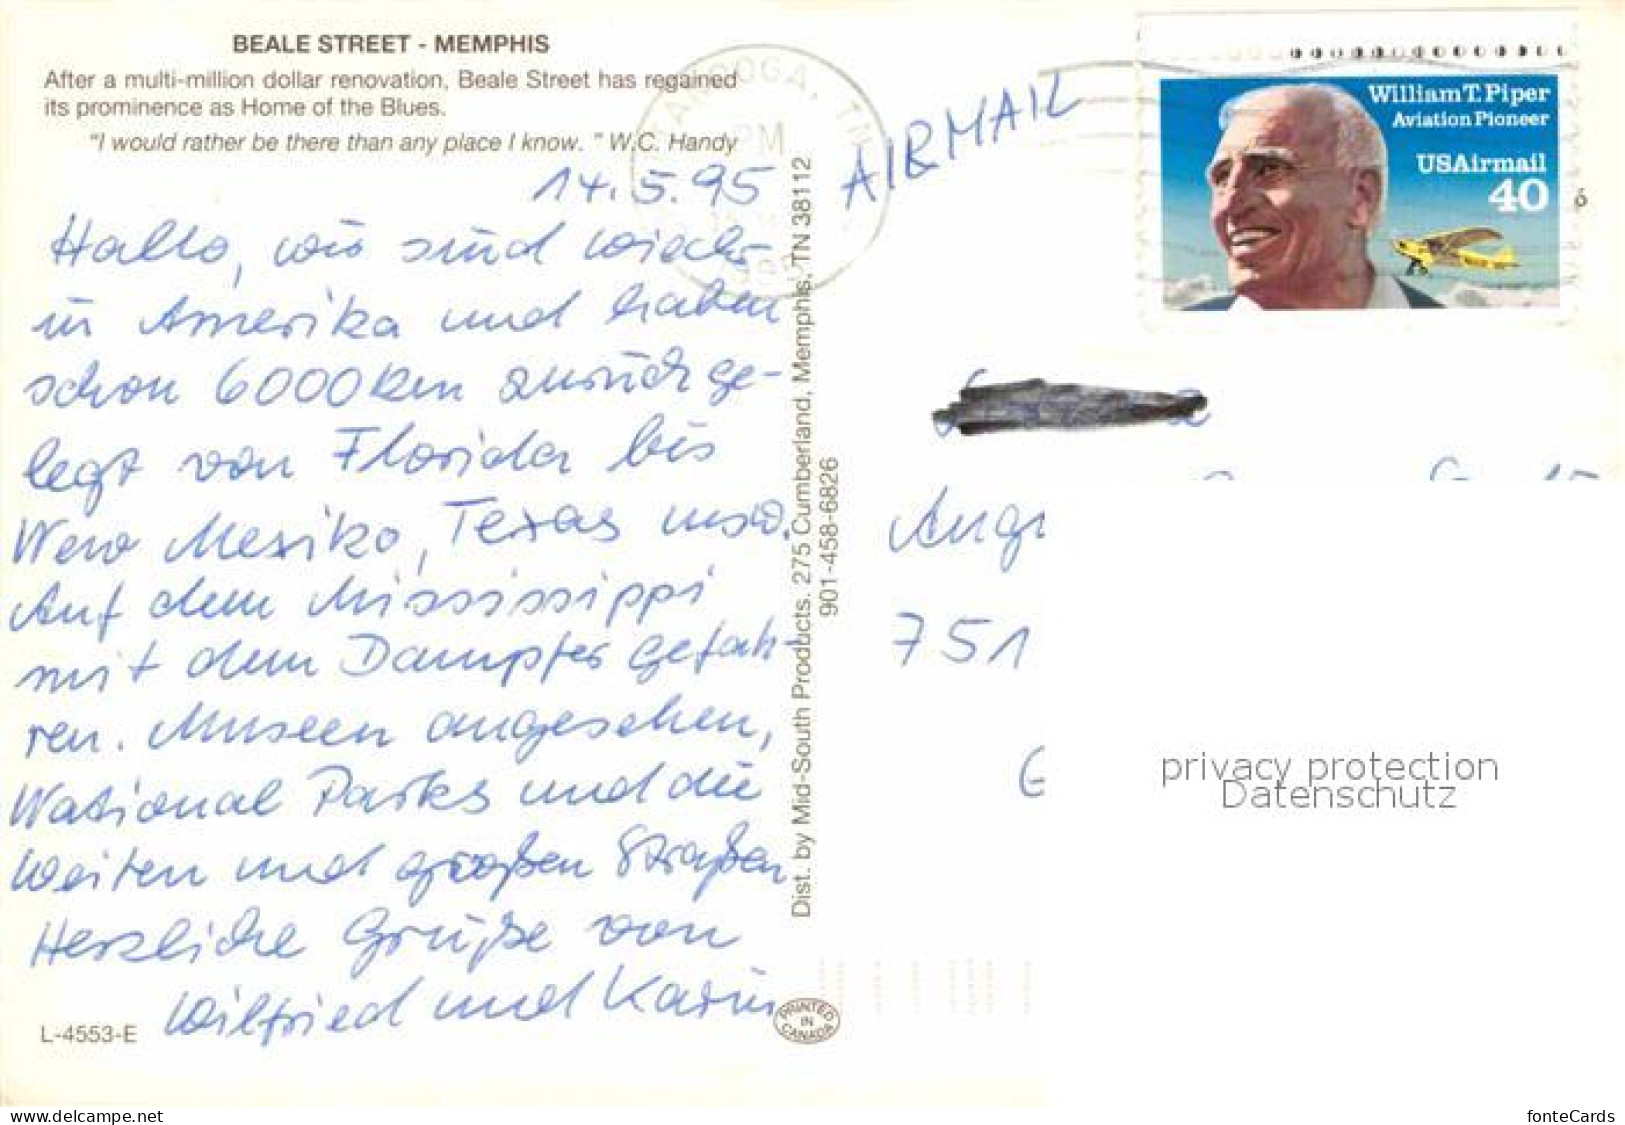 BEALE STREET - MEMPHIS
After a multi-million dollar renovation, Beale Street has regained
its prominence as Home of the Blues.
"I would rather be there than any place I know." W.C. Handy
14.5.95
Hallo, wir sind wieder
in Amerika und haben
schon 6000 km zurückge-
legt von Florida bis
New Mexiko, Texas usw.
Auf dem Mississippi
mit dem Dampfer gefah-
ren. Museen angesehen,
National Parks und die
weiten und großen Straßen
Herzliche Grüße von
Wilfried und Karin
L-4553-E
PRINTED
IN
CANADA
Dist. by Mid-South Products, 275 Cumberland, Memphis, TN 38112
901-458-6826
OOGA, TN
PM
AIRMAIL
William T. Piper
Aviation Pioneer
USAirmail
40
751
privacy protection
Datenschutz
www.delcampe.net
fonteCards